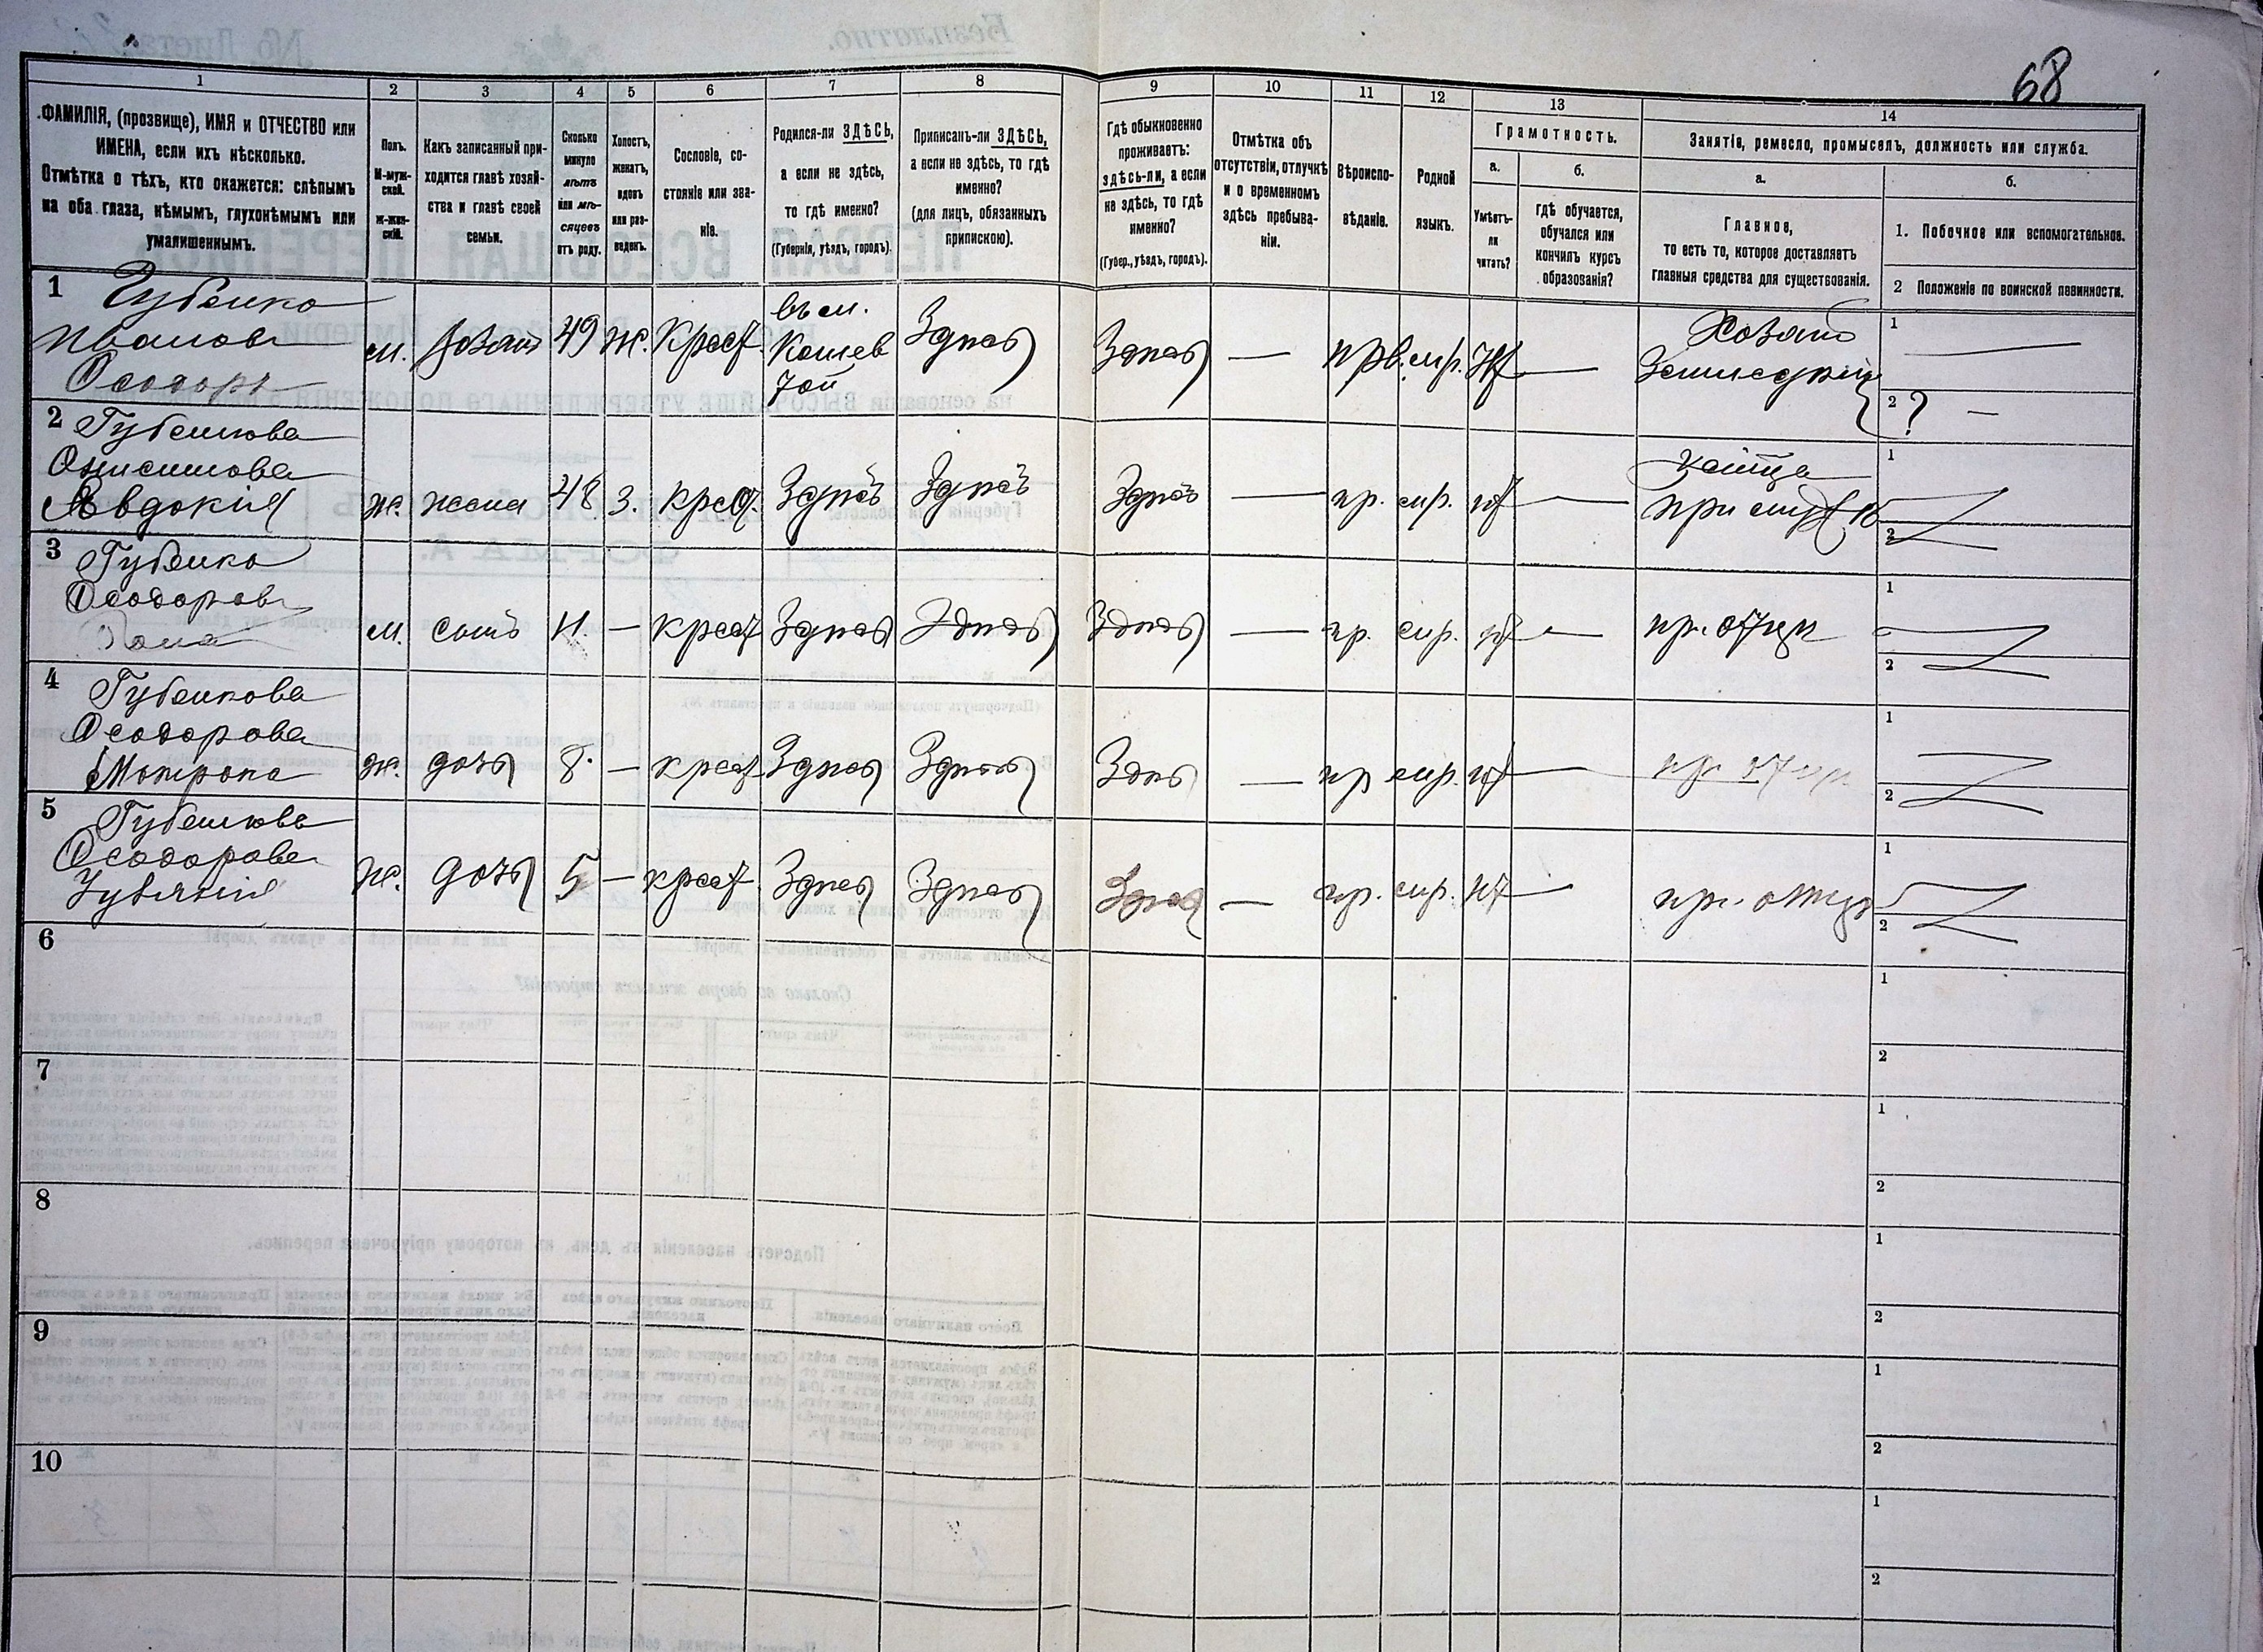 68
1 2 3 4 5 6 7 8 9 10 11 12 13 14
ФАМИЛІЯ, (прозвище), ИМЯ и ОТЧЕСТВО или
ИМЕНА, если ихъ нѣсколько.
Отмѣтка о тѣхъ, кто окажется: слѣпымъ
на оба глаза, нѣмымъ, глухонѣмымъ или
умалишеннымъ.
Полъ.
М-муж-
ской.
Ж-жен-
скій.
Какъ записанный при-
ходится главѣ хозяй-
ства и главѣ своей
семьи.
Сколько
минуло
лѣтъ
или мѣ-
сяцевъ
отъ роду.
Холостъ,
женатъ,
вдовъ
или раз-
веденъ.
Сословіе, со-
стояніе или зва-
ніе.
Родился-ли ЗДѢСЬ,
а если не здѣсь,
то гдѣ именно?
(Губернія, уѣздъ, городъ).
Приписанъ-ли ЗДѢСЬ,
а если не здѣсь, то гдѣ
именно?
(для лицъ, обязанныхъ
припискою).
Гдѣ обыкновенно
проживаетъ:
здѣсь-ли, а если
не здѣсь, то гдѣ
именно?
(Губер., уѣздъ, городъ).
Отмѣтка объ
отсутствіи, отлучкѣ
и о временномъ
здѣсь пребыва-
ніи.
Вѣроиспо-
вѣданіе.
Родной
языкъ.
Грамотность.
а.
Умѣетъ-
ли
читать?
б.
гдѣ обучается,
обучался или
кончилъ курсъ
образованія?
Занятіе, ремесло, промыселъ, должность или служба.
а.
Главное,
то есть то, которое доставляетъ
главныя средства для существованія.
б.
1. Побочное или вспомогательное.
2 Положеніе по воинской повинности.
1 Губенко
Ивановъ
Ѳеодоръ
м. хозяинъ 49 Ж. Крест.
въ м.
Здѣсь Здѣсь — мр. — Хозяинъ
1 —
2 ? —
2 Губенкова
Онисимова
Явдокія
ж. жена 48 З. крест. Здѣсь Здѣсь Здѣсь — пр. мр. —
1
2
3 Губенко
Ѳеодоровъ
м. сынъ 11. — крест Здѣсь Здѣсь Здѣсь — пр. мр. — пр. отцѣ
1
2
4 Губенкова
Ѳеодорова
Мотрона
ж. дочь 8. — крест Здѣсь Здѣсь Здѣсь — пр мр. — пр. отцѣ
1
2
5 Губенкова
Ѳеодорова
ж. дочь 5 — крест. Здѣсь Здѣсь Здѣсь — пр. мр. — при отцѣ
1
2
6
1
2
7
1
2
8
1
2
9
1
2
10
1
2